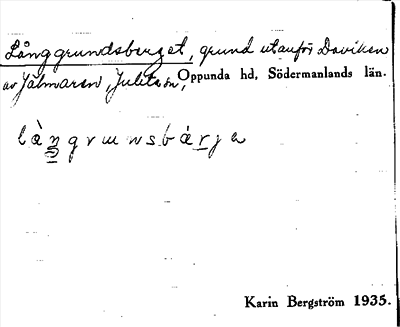 Långgrundsberget, grund utanför Daviken
av Jälmaren, Juleta sn, Oppunda hd, Södermanlands län.
làŋgrunsbárja
Karin Bergström 1935.